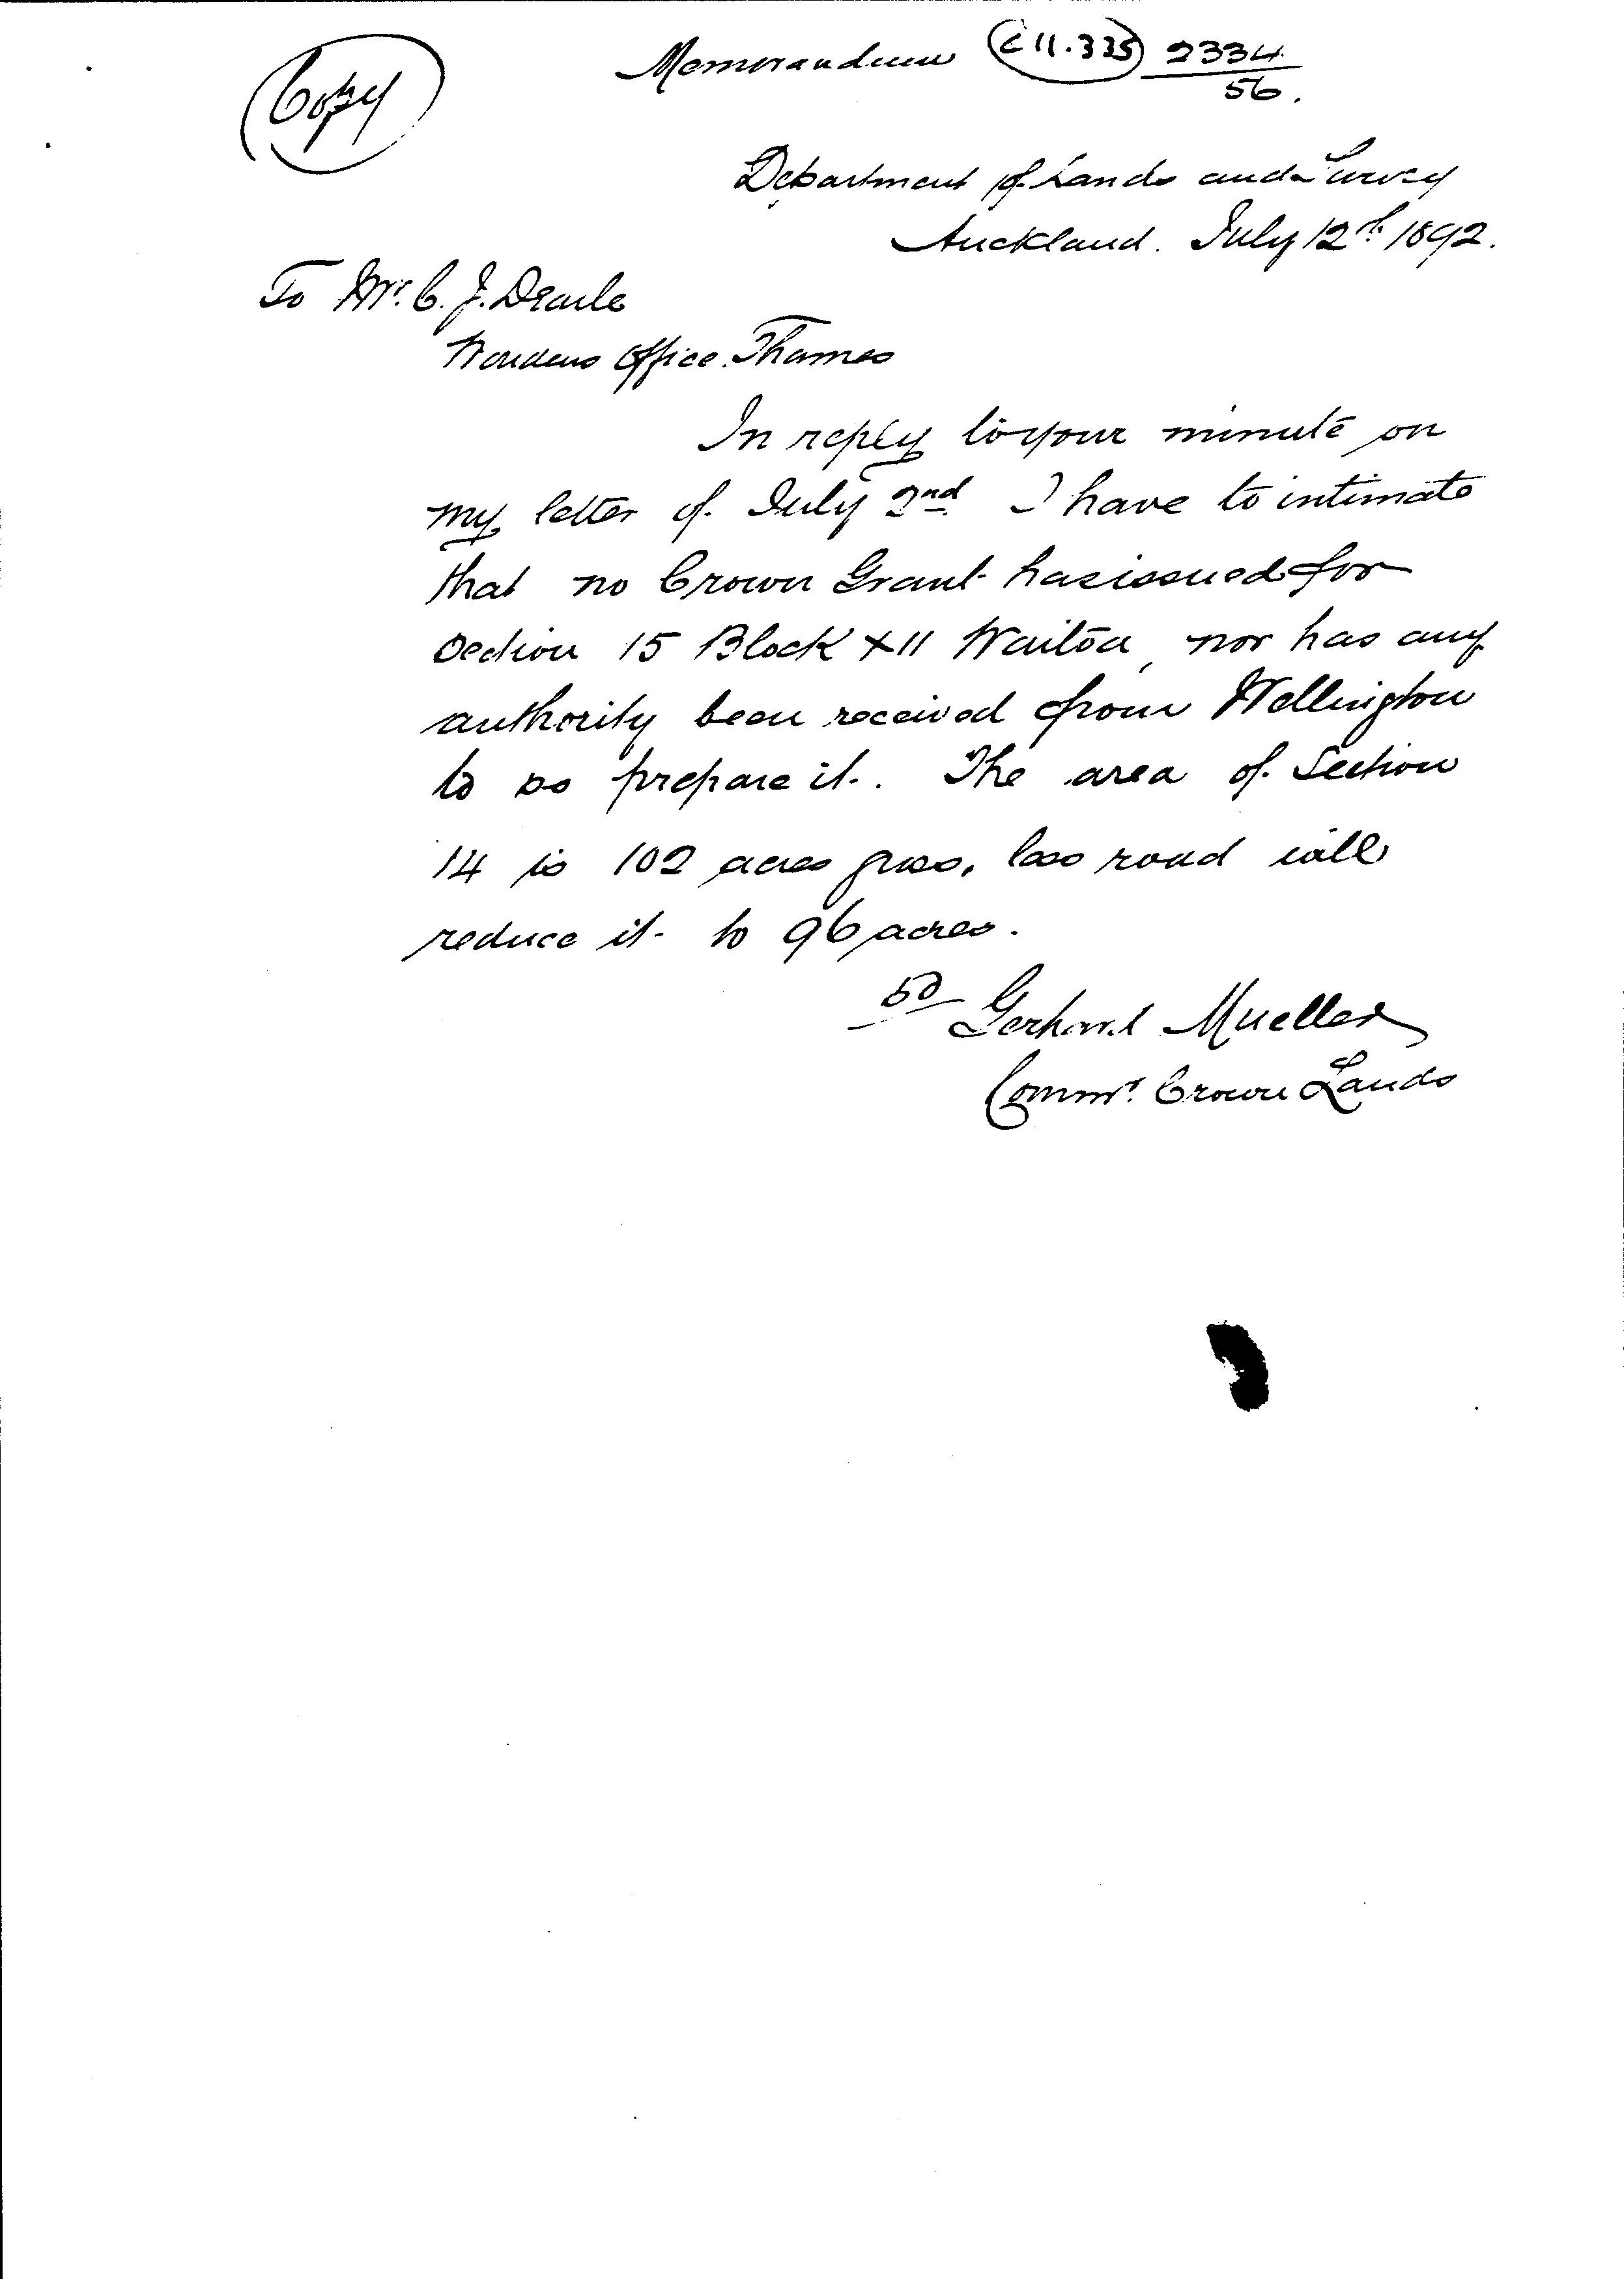 Copy
Memorandum C 11.335 2334
56.
Department of Lands and Survey
Auckland. July 12th 1892.
To Mr. C. J. Dearle
Wardens Office. Thames
In reply to your minute on
my letter of July 2nd I have to intimate
that no Crown Grant has issued for
Section 15 Block XII Waitoa, nor has any
authority been received from Wellington
to so prepare it. The area of Section
14 is 102 acres gross, less road will
reduce it to 96 acres.
sd Gerhard Mueller
Commr. Crown Lands